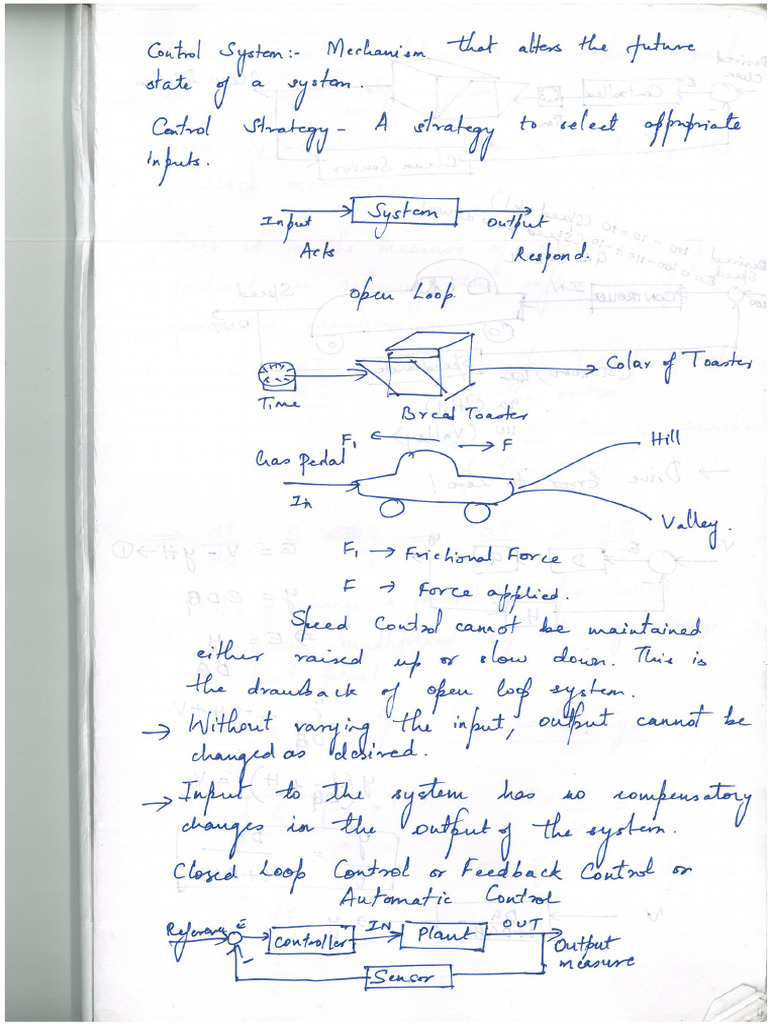 Control System:- Mechanism that alters the future
state of a system.
Control Strategy - A strategy to select appropriate
inputs.
System
Input
Output
Acts
Respond.
Open Loop.
Color of Toaster
Time
Bread Toaster
F₁
F
Hill
Gas Pedal
In
Valley.
F₁ → Frictional Force
F → Force applied.
Speed Control cannot be maintained
either raised up or slow down. This is
the drawback of open loop system.
→ Without varying the input, output cannot be
changed as desired.
→ Input to the system has no compensatory
changes in the output of the system.
Closed Loop Control or Feedback Control or
Automatic Control
Reference
E
Controller
IN
Plant
OUT
-
Output
measure
Sensor